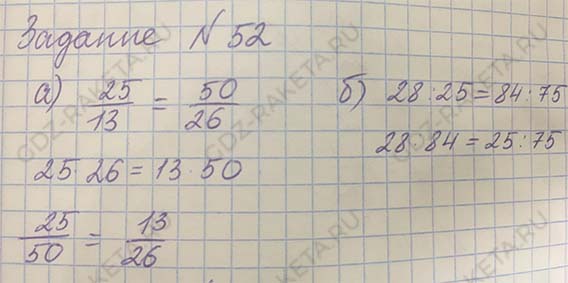 Задание N 52
а) 25/13 = 50/26
25 26 = 13 · 50
25/50 = 13/26
б) 28 : 25 = 84 : 75
28 : 84 = 25 : 75
GDZ-RAKETA.RU